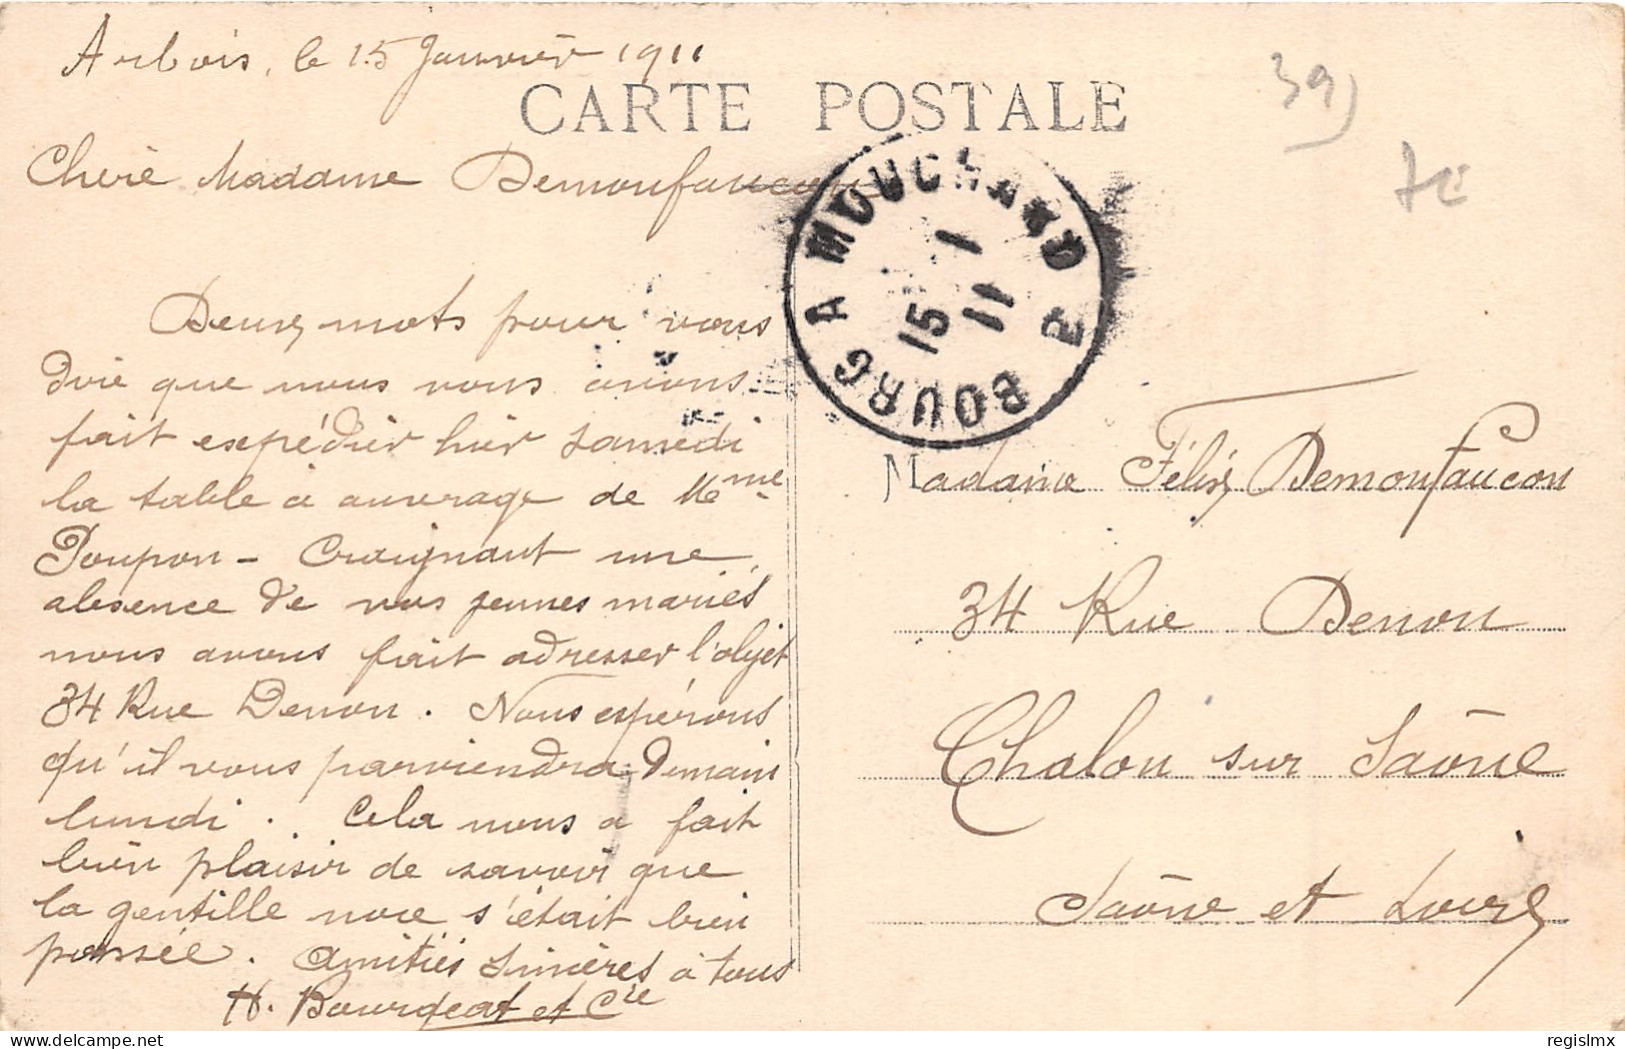 Arbois, le 15 Janvier 1911
CARTE POSTALE
39)
7€
Chère Madame Demonfaucon
BOURG A MOUCHARD 2
15 1
11
Deux mots pour vous
dire que nous vous avons
fait expédier hier samedi
la table à ouvrage de Mme
Poupon - Craignant une
absence de vos jeunes mariés
nous avons fait adresser l'objet
34 Rue Denon. Nous espérons
qu'il vous parviendra demain
lundi. Cela nous a fait
bien plaisir de savoir que
la gentille noce s'était bien
passée. Amitiés sincères à tous
H. Bourgeat et Cie
Madame Félix Demonfaucon
34 Rue Denon
Chalon sur Saône
Saône et Loire
delcampe.net
regislmx